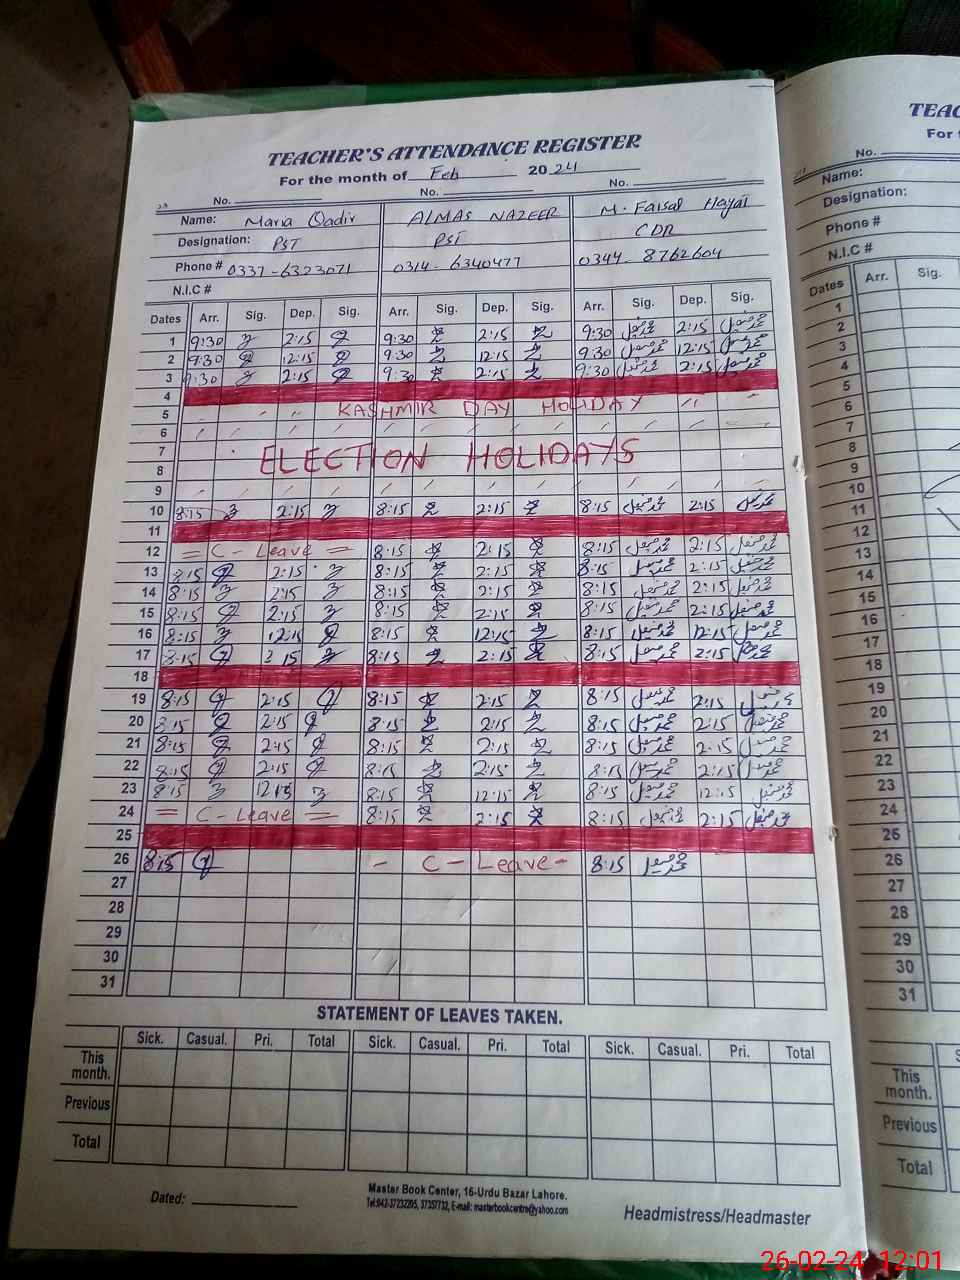 TEACHER'S ATTENDANCE REGISTER
For the month of Feb 2024
No. No. No.
Name: Maria Qadir ALMAS NAZEER M. Faisal Hayat
Designation: PST PST CDR
Phone # 0337-6323071 0314-6340477 0344-8762604
N.I.C #
Dates Arr. Sig. Dep. Sig. Arr. Sig. Dep. Sig. Arr. Sig. Dep. Sig.
1 9:30 2:15 9:30 2:15 9:30 2:15
2 9:30 12:15 9:30 12:15 9:30 12:15
3 9:30 2:15 9:30 2:15 9:30 2:15
4
5 KASHMIR DAY HOLIDAY
6
7
8 ELECTION HOLIDAYS
9
10 8:15 2:15 8:15 2:15 8:15 2:15
11
12 = C - Leave = 8:15 2:15 8:15 2:15
13 8:15 2:15 8:15 2:15 8:15 2:15
14 8:15 2:15 8:15 2:15 8:15 2:15
15 8:15 2:15 8:15 2:15 8:15 2:15
16 8:15 12:15 8:15 12:15 8:15 12:15
17 8:15 2:15 8:15 2:15 8:15 2:15
18
19 8:15 2:15 8:15 2:15 8:15 2:15
20 8:15 2:15 8:15 2:15 8:15 2:15
21 8:15 2:15 8:15 2:15 8:15 2:15
22 8:15 2:15 8:15 2:15 8:15 2:15
23 8:15 12:15 8:15 12:15 8:15 12:15
24 = C - Leave = 8:15 2:15 8:15 2:15
25
26 8:15 - C - Leave - 8:15
27
28
29
30
31
STATEMENT OF LEAVES TAKEN.
Sick. Casual. Pri. Total Sick. Casual. Pri. Total Sick. Casual. Pri. Total
This month.
Previous
Total
Dated:
Master Book Center, 16-Urdu Bazar Lahore.
Tel:042-37232205, 37357732, E-mail: masterbookcentre@yahoo.com
Headmistress/Headmaster
For
No.
Name:
Designation:
Phone #
N.I.C #
Dates Arr. Sig.
1
2
3
4
5
6
7
8
9
10
11
12
13
14
15
16
17
18
19
20
21
22
23
24
25
26
27
28
29
30
31
This month.
Previous
Total
26-02-24 12:01